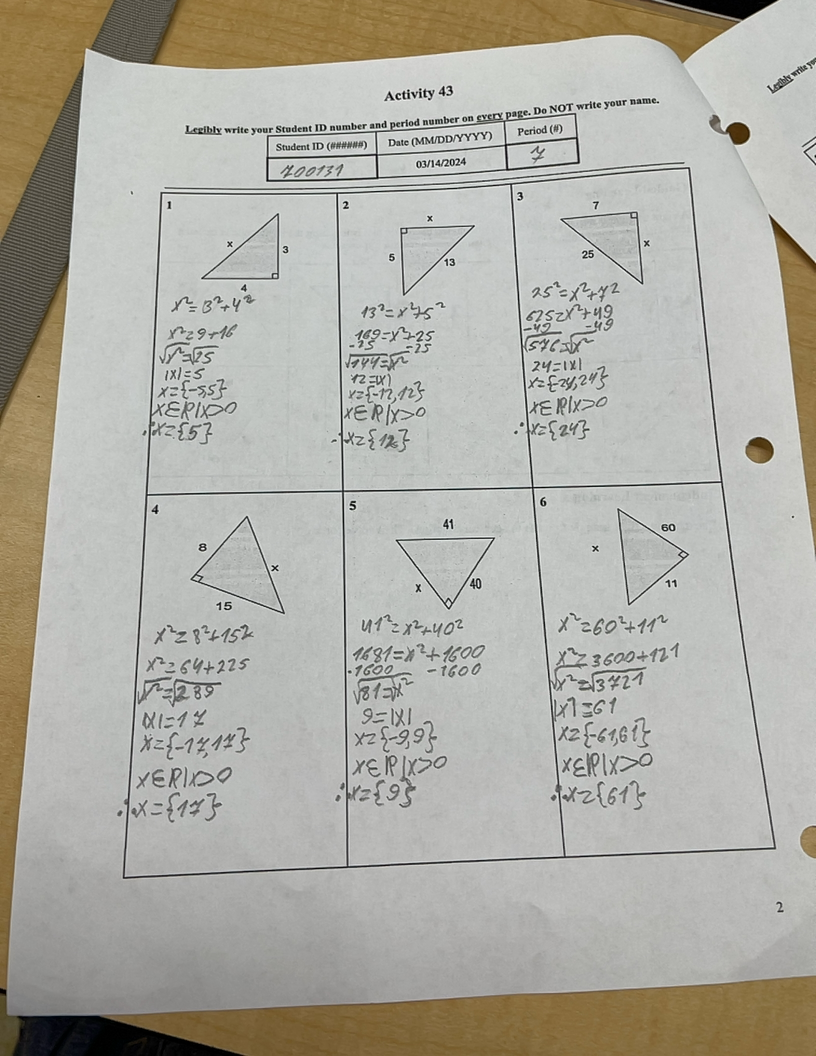 Activity 43
Legibly write your Student ID number and period number on every page. Do NOT write your name.
Student ID (######) Date (MM/DD/YYYY) Period (#)
700131 03/14/2024 7
1
x
3
4
x²=3²+4²
x²=9+16
√x²=√25
|x|=5
x={-5,5}
x∈ℝ|x>0
∴x={5}
2
x
5
13
13²=x²+5²
169=x²+25
-25 -25
√144=√x²
12=|x|
x={-12,12}
x∈ℝ|x>0
∴x={12}
3
7
x
25
25²=x²+72
625=x²+49
-49 -49
√576=√x²
24=|x|
x={-24,24}
x∈ℝ|x>0
∴x={24}
4
8
x
15
x²=8²+15²
x²=64+225
√x²=√289
|x|=17
x={-17,17}
x∈ℝ|x>0
∴x={17}
5
41
x
40
41²=x²+40²
1681=x²+1600
-1600 -1600
√81=√x²
9=|x|
x={-9,9}
x∈ℝ|x>0
∴x={9}
6
60
x
11
x²=60²+11²
x²=3600+121
√x²=√3721
|x|=61
x={-61,61}
x∈ℝ|x>0
∴x={61}
2
Legibly write